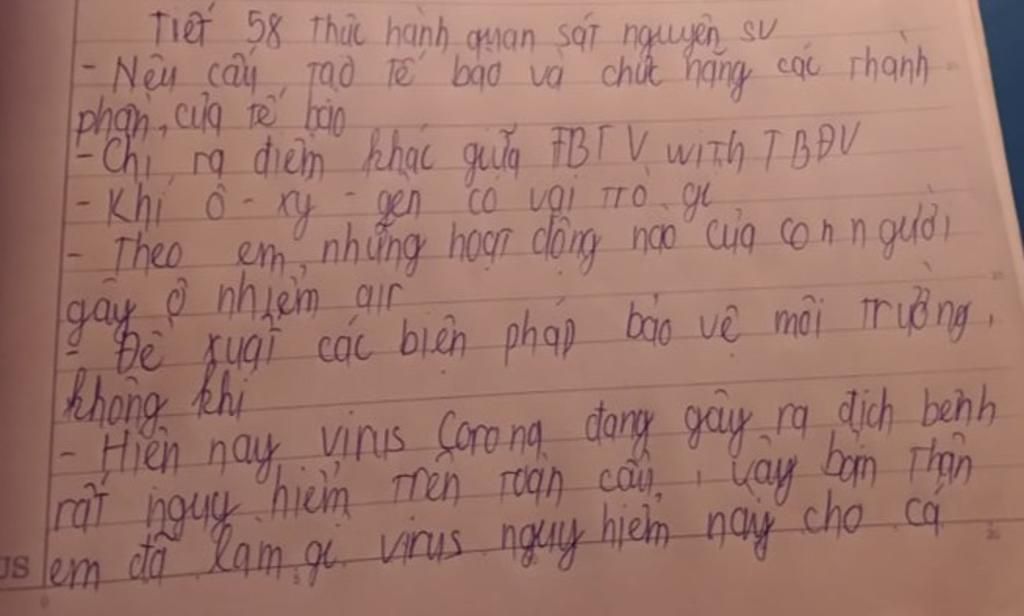 Tiết 58 Thực hành quan sát nguyên sv
- Nêu cấu tạo tế bào và chức năng các thành
phần của tế bào
- Chỉ ra điểm khác giữa TBTV with TBĐV
- Khí ô-xy-gen có vai trò gì
- Theo em, những hoạt động nào của con người
gây ô nhiễm air
- Đề xuất các biện pháp bảo vệ môi trường,
không khí
- Hiện nay virus Corona đang gây ra dịch bệnh
rất nguy hiểm trên toàn cầu, vậy bản thân
em đã làm gì virus nguy hiểm này cho cá
JS